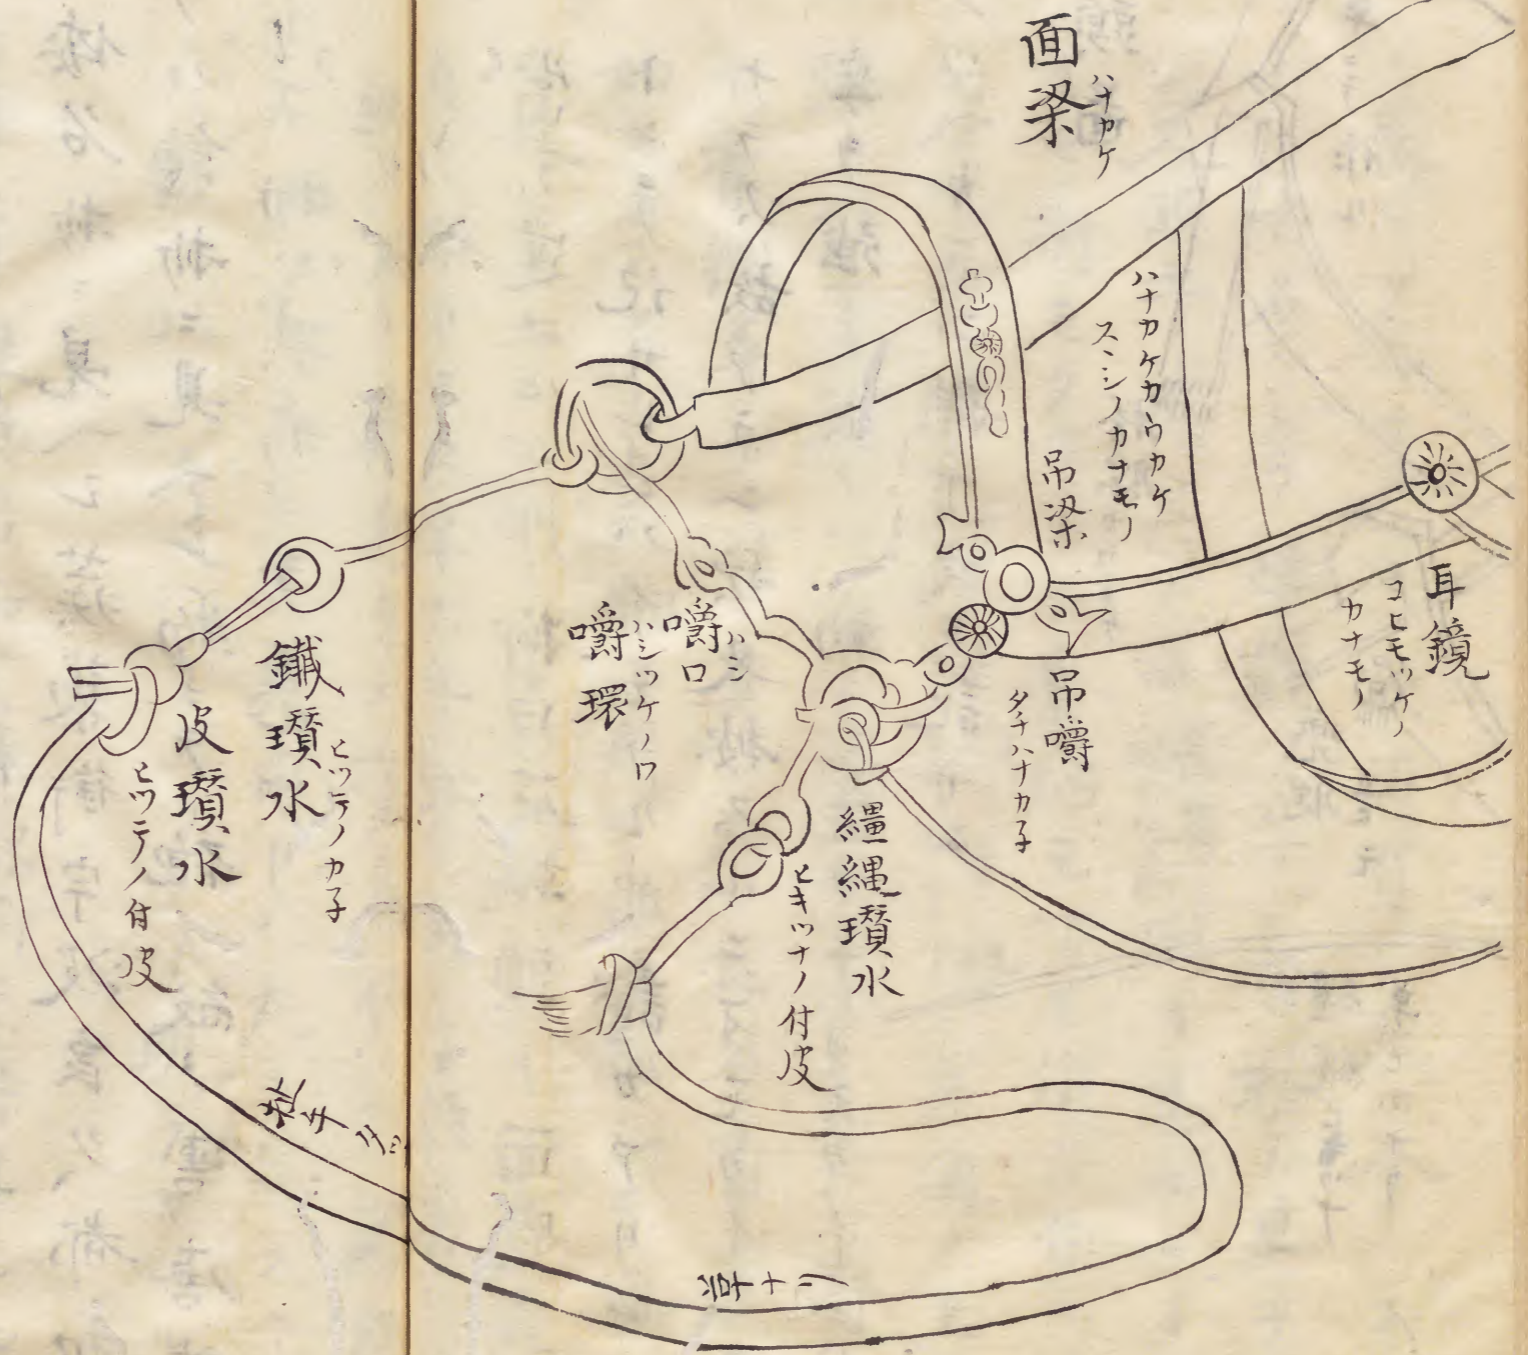 面梁
ハナカケ
ハナカケカウカケ
スミシノカナモノ
吊梁
耳鏡
コヒモツケノ
カナモノ
吊嚼
タチハナカ子
嚼口
ハシ
嚼環
ハシツケノロ
繮縄瓉水
ヒキツナノ付皮
鐵瓉水
ヒツテノカ子
皮瓉水
ヒツテノ付皮